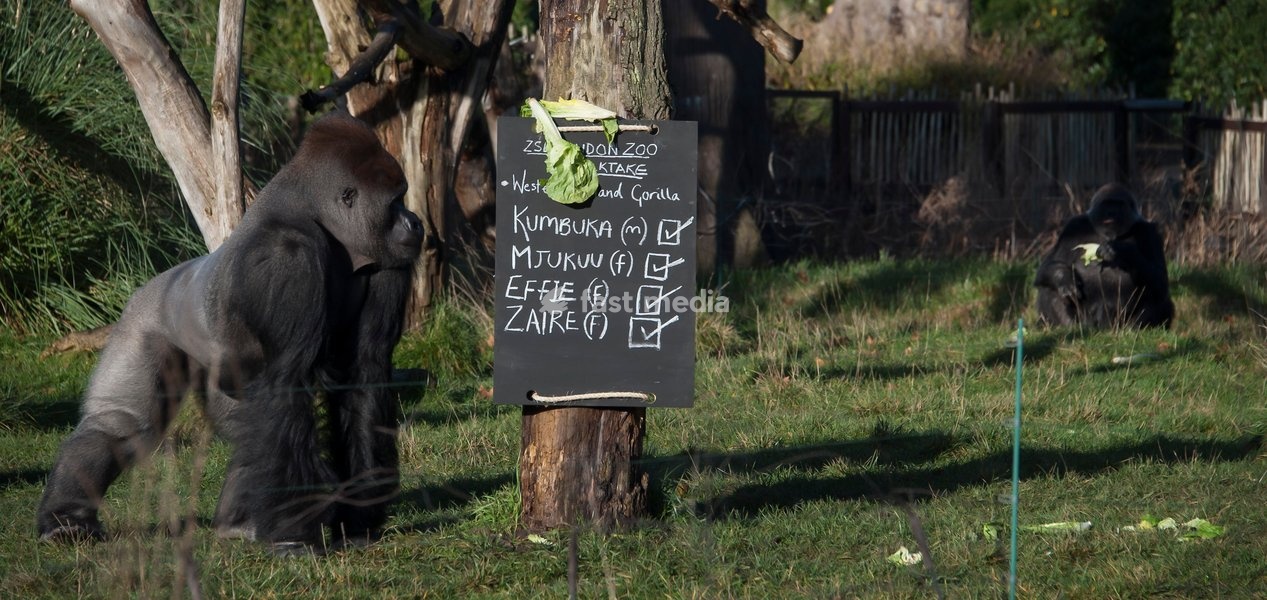 ZSL LONDON ZOO
KTAKE
• Weste and Gorilla
KUMBUKA (m) ☑
MJUKUU (f) ☑
EFFIE (f) ☑
ZAIRE (f) ☑
fast media